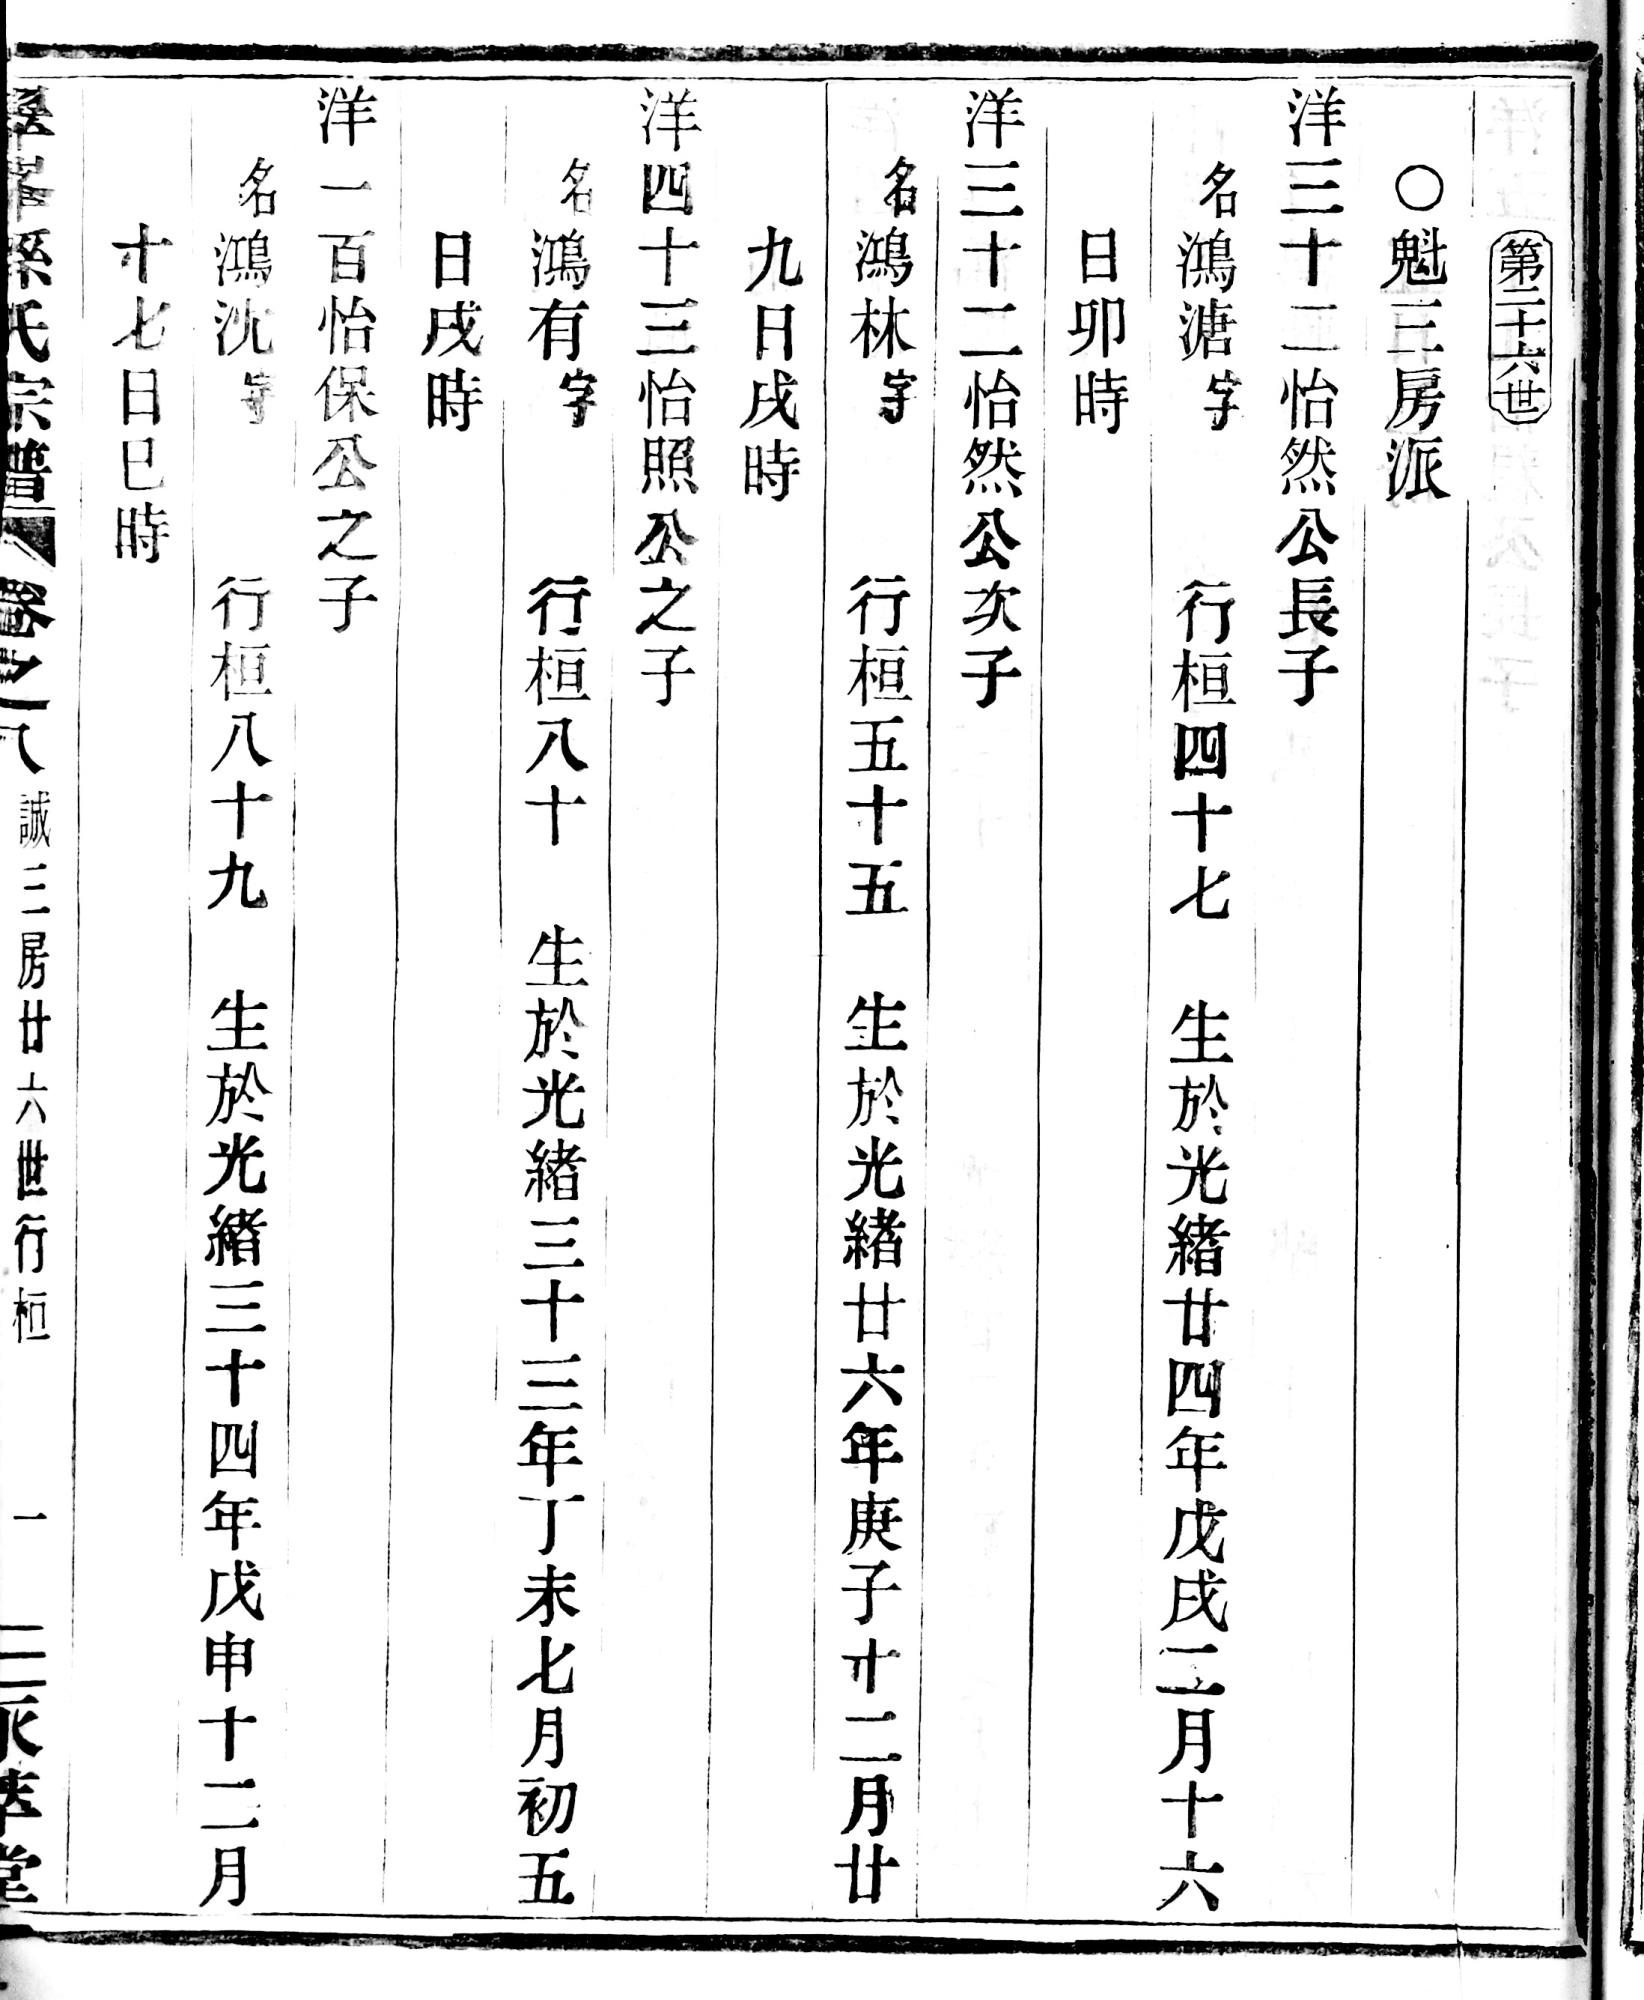 第二十六世
○魁三房派
洋三十二怡然公長子
名鴻溏字 行桓四十七 生於光緒廿四年戊戌二月十六
日卯時
洋三十二怡然公次子
名鴻林字 行桓五十五 生於光緒廿六年庚子十二月廿
九日戌時
洋四十三怡照公之子
名鴻有字 行桓八十 生於光緒三十三年丁未七月初五
日戌時
洋一百怡保公之子
名鴻沈字 行桓八十九 生於光緒三十四年戊申十二月
十七日巳時
孫氏宗譜 卷之八 誠三房廿六世行桓 一 萃堂